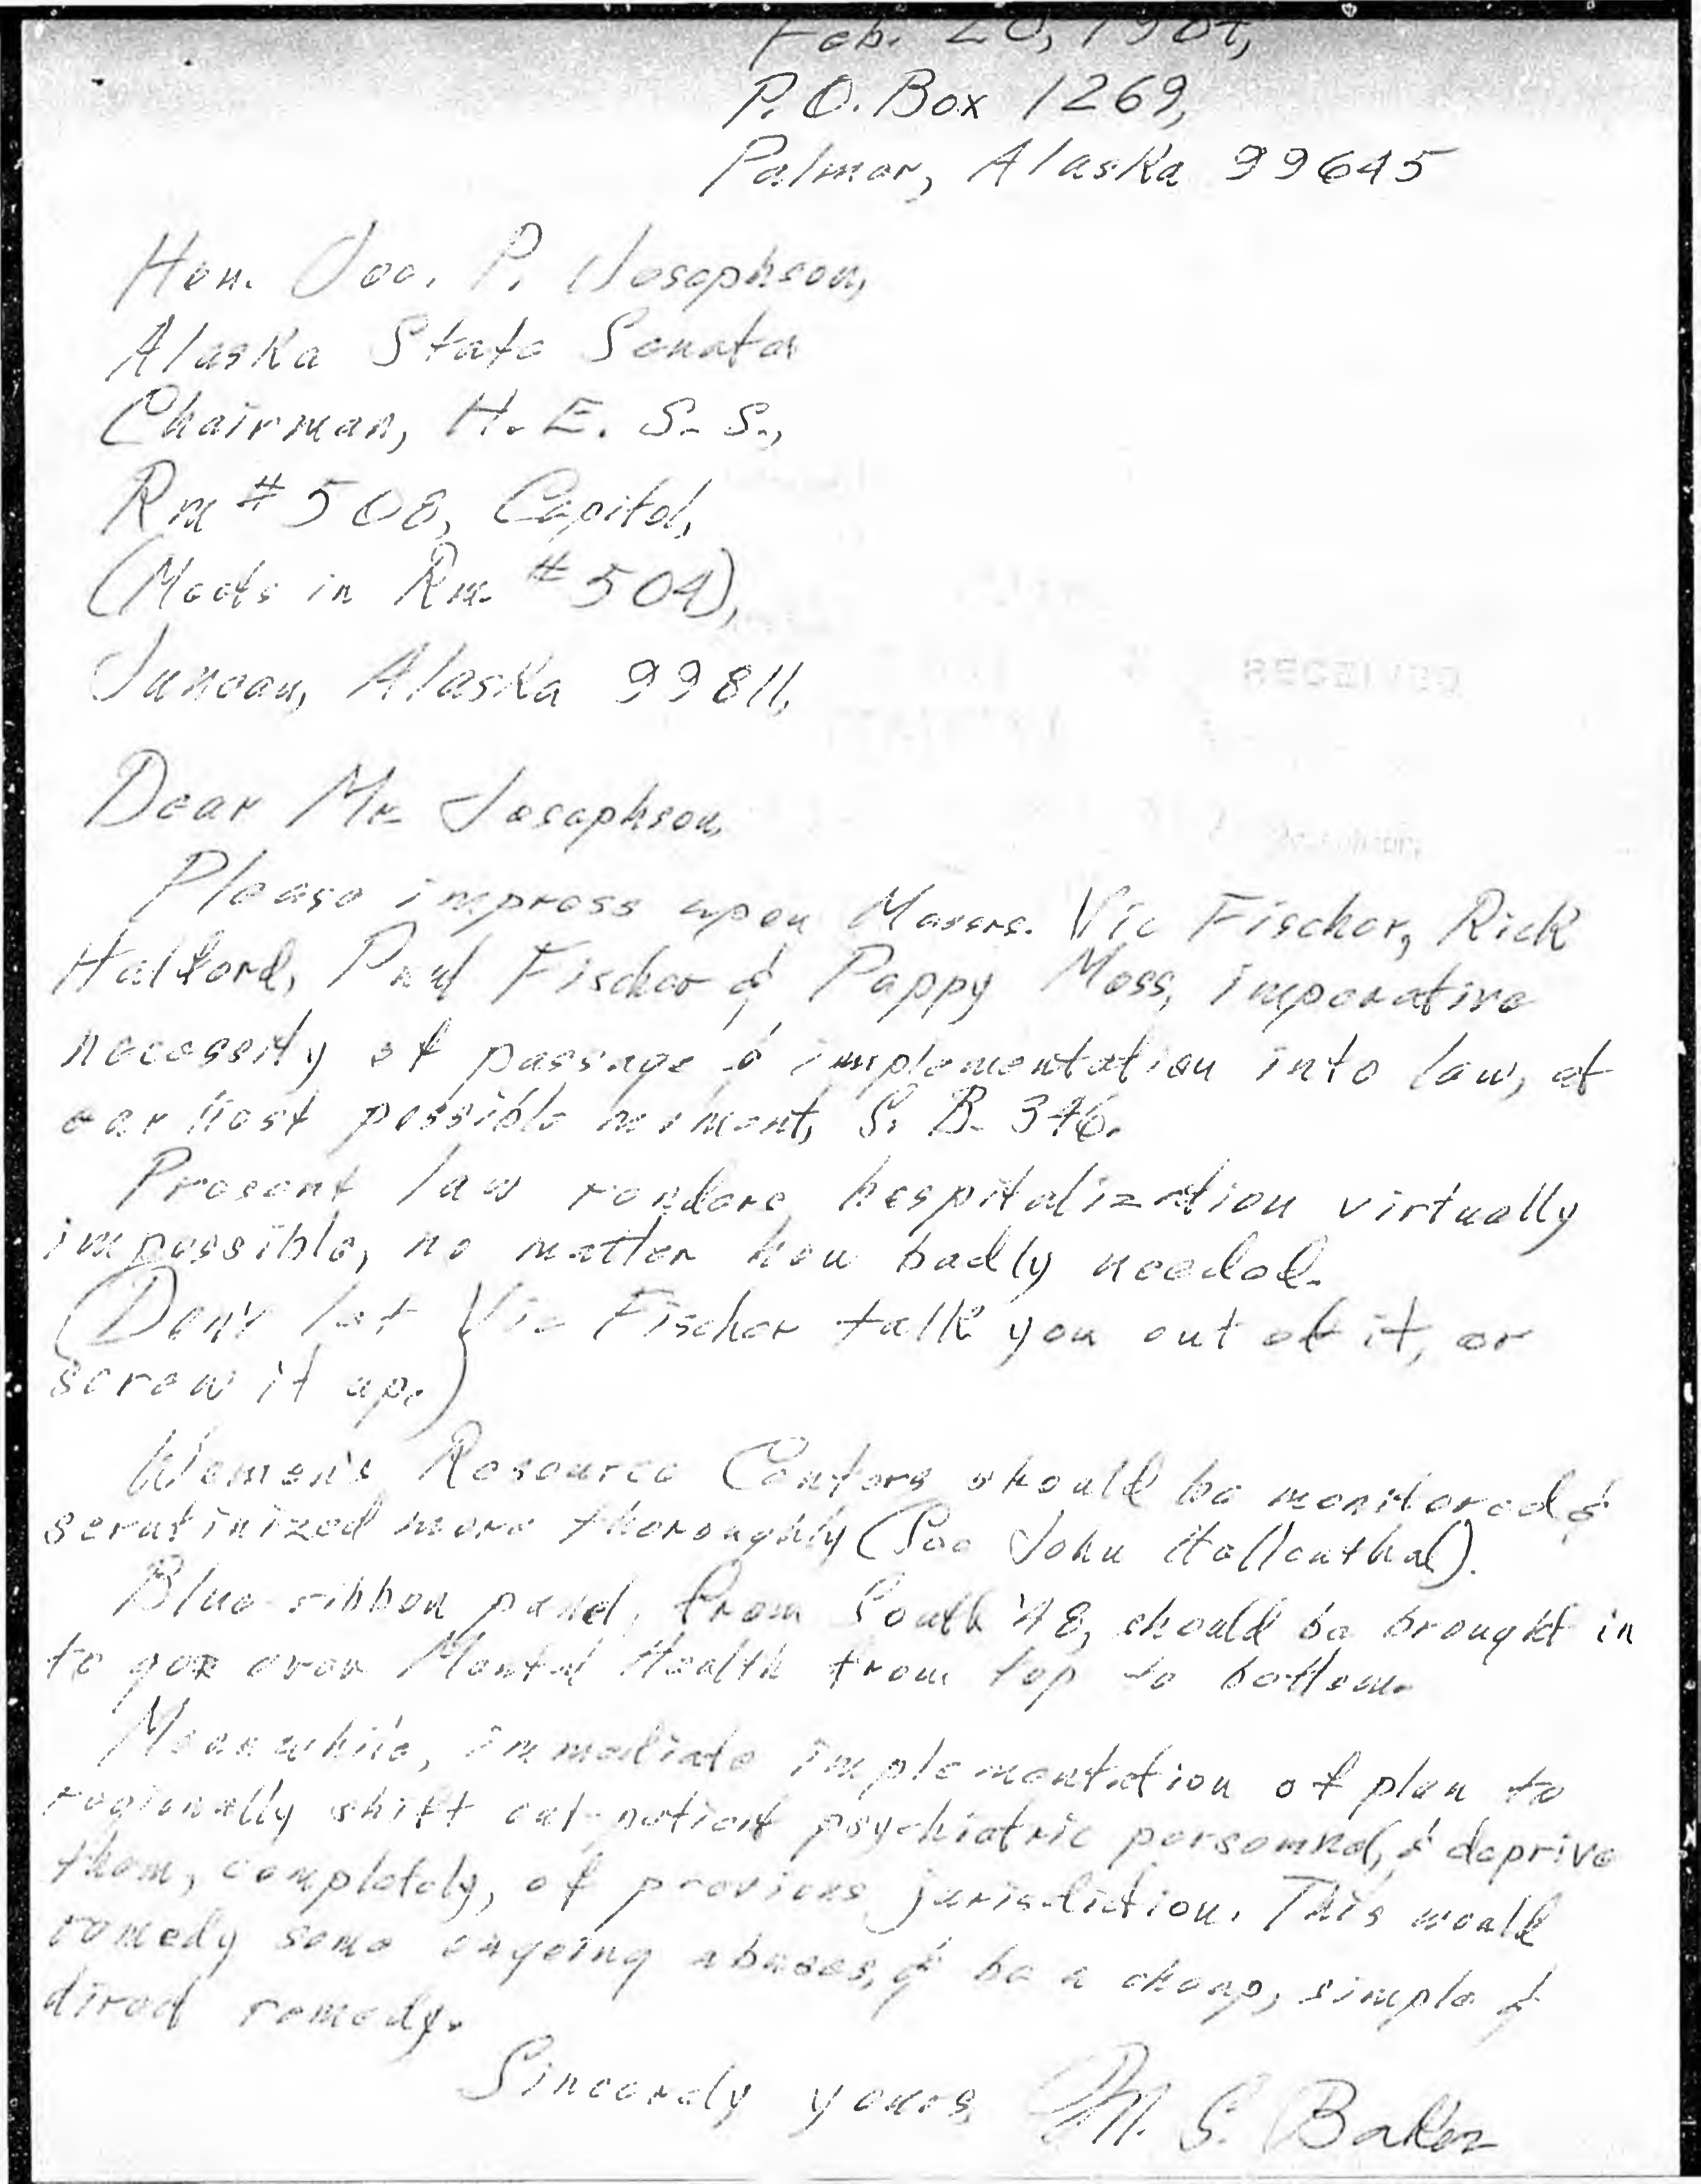 Feb. 20, 1984,
P.O. Box 1269,
Palmer, Alaska 99645
Hon. Joe. P. Josephson,
Alaska State Senator
Chairman, H. E. S. S.,
Rm # 508, Capitol,
(Meets in Rm. # 504),
Juneau, Alaska 99811,
Dear Mr. Josephson,
Please impress upon Messrs. Vic Fischer, Rick
Halford, Paul Fischer & Pappy Moss, imperative
necessity of passage & implementation into law, at
earliest possible moment, S. B. 346.
Present law renders hospitalization virtually
impossible, no matter how badly needed.
(Don't let Vic Fischer talk you out of it, or
screw it up.)
Women's Resource Centers should be monitored &
scrutinized more thoroughly (See John Hallenthal).
Blue-ribbon panel, from South '48, should be brought in
to goe over Mental Health from top to bottom.
Meanwhile, immediate implementation of plan to
regionally shift out-patient psychiatric personnel, & deprive
them, completely, of previous jurisdiction. This would
remedy some ongoing abuses, & be a cheap, simple &
direct remedy.
Sincerely yours, M. S. Baker